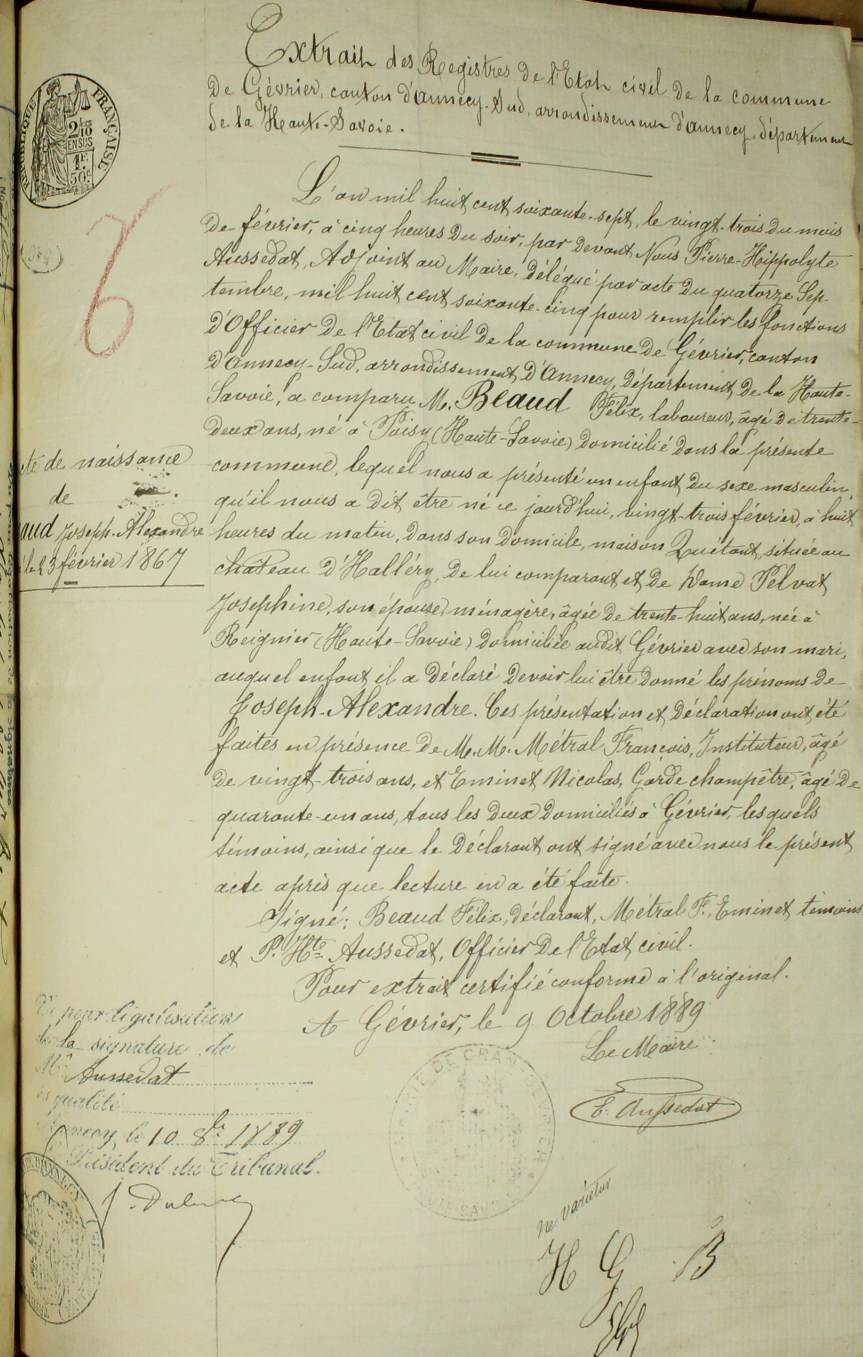 Extrait des Registres de l'Etat civil de la commune
de Gévrier, canton d'Annecy-Sud, arrondissement d'Annecy, département
de la Haute-Savoie.
RÉPUBLIQUE FRANÇAISE
2/10
EN SUS
1F.
50c
L'an mil huit cent soixante-sept, le vingt-trois du mois
de février, à cinq heures du soir, par devant Nous Pierre-Hippolyte
Aussedat, Adjoint au Maire, délégué par acte du quatorze Sep-
tembre, mil huit cent soixante-cinq pour remplir les fonctions
d'Officier de l'Etat civil de la commune de Gévrier, canton
d'Annecy-Sud, arrondissement d'Annecy, Département de la Haute-
Savoie, a comparu M. Beaud Félix, laboureur, âgé de trente-
deux ans, né à Poisy (Haute-Savoie) domicilié dans la présente
commune, lequel nous a présenté un enfant du sexe masculin,
qu'il nous a dit être né ce jourd'hui, vingt-trois février, à huit
heures du matin, dans son domicile, maison Quétant, située au
chateau d'Halléry, de lui comparant et de Dame Pelvat
Josephine, son épouse, ménagère, âgée de trente-huit ans, née à
Reignier (Haute-Savoie) domiciliée audit Gévrier avec son mari,
auquel enfant il a déclaré devoir lui être donné les prénoms de
Joseph-Alexandre. Ces présentation et déclaration ont été
faites en présence de M.M. Métral François, Instituteur, âgé
de vingt-trois ans, et Eminet Nicolas, Garde champêtre, âgé de
quarante-un ans, tous les deux domiciliés à Gévrier, lesquels
témoins, ainsi que le déclarant ont signé avec nous le présent
acte après que lecture en a été faite.
Signé: Beaud Félix, déclarant, Métral F., Eminet témoins
et P. Hte Aussedat, Officier de l'Etat civil.
Pour extrait certifié conforme à l'original.
A Gévrier, le 9 Octobre 1889
Le Maire
E. Aussedat
te de naissance
de
aud Joseph-Alexandre
le 23 février 1867
pour légalisation
de la signature de
M. Aussedat
qualité
le 10 8bre 1889
Président du Tribunal.
ne varietur
H G B